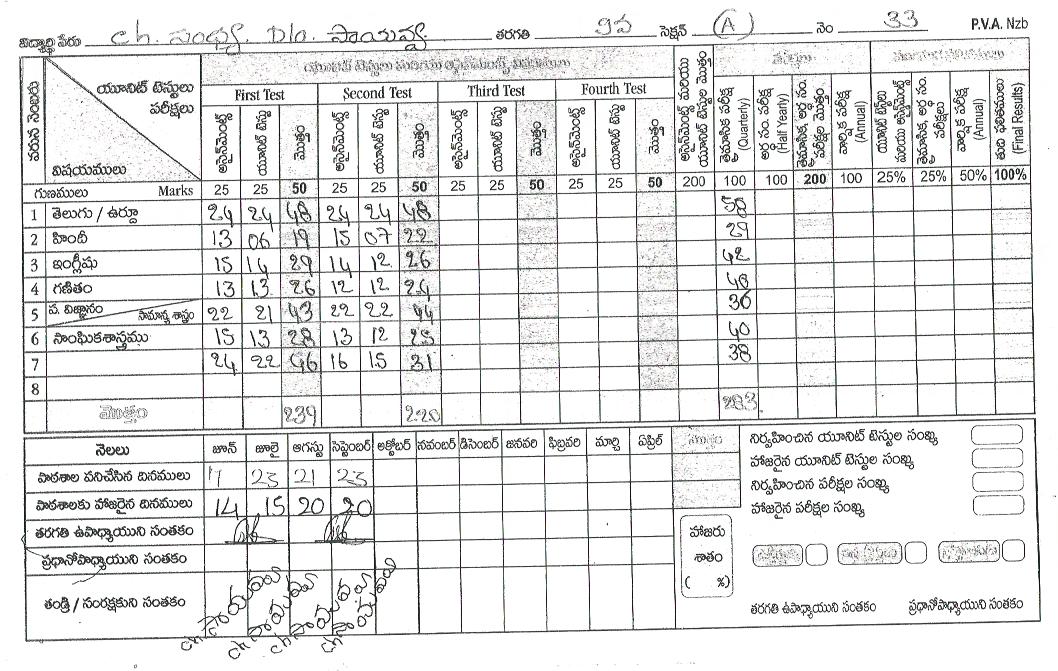 విద్యార్థి పేరు ch. సంధ్య D/o. సాయవ్వ తరగతి 9వ సెక్షన్ (A) నెం 33 P.V.A. Nzb
వరుస నెంబరు యూనిట్ టెస్టులు పరీక్షలు విషయములు
First Test Second Test Third Test Fourth Test
అస్సైన్‌మెంట్స్ యూనిట్ టెస్టు మొత్తం అస్సైన్‌మెంట్స్ యూనిట్ టెస్టు మొత్తం అస్సైన్‌మెంట్స్ యూనిట్ టెస్టు మొత్తం అస్సైన్‌మెంట్స్ యూనిట్ టెస్టు మొత్తం అస్సైన్‌మెంట్స్ మరియు యూనిట్ టెస్టుల మొత్తం త్రైమాసిక పరీక్ష (Quarterly) అర్థ సం. పరీక్ష (Half Yearly) త్రైమాసిక, అర్థ సం. పరీక్షల మొత్తం వార్షిక పరీక్ష (Annual) యూనిట్ టెస్టులు మరియు అస్సైన్‌మెంట్స్ త్రైమాసిక, అర్థ సం. పరీక్షలు వార్షిక పరీక్ష (Annual) తుది ఫలితములు (Final Results)
గుణములు Marks 25 25 50 25 25 50 25 25 50 25 25 50 200 100 100 200 100 25% 25% 50% 100%
1 తెలుగు / ఉర్దూ 24 24 48 24 24 48 58
2 హిందీ 13 06 19 15 07 22 29
3 ఇంగ్లీషు 15 14 29 14 12 26 42
4 గణితం 13 13 26 12 12 24 40
5 ప. విజ్ఞానం సామాన్య శాస్త్రం 22 21 43 22 22 44 36
6 సాంఘికశాస్త్రము 15 13 28 13 12 25 40
7 24 22 46 16 15 31 38
8
మొత్తం 239 220 283
నెలలు జూన్ జూలై ఆగస్టు సెప్టెంబర్ అక్టోబర్ నవంబర్ డిసెంబర్ జనవరి ఫిబ్రవరి మార్చి ఏప్రిల్ మొత్తం
పాఠశాల పనిచేసిన దినములు 17 23 21 23
పాఠశాలకు హాజరైన దినములు 14 15 20 20
తరగతి ఉపాధ్యాయుని సంతకం
ప్రధానోపాధ్యాయుని సంతకం
తండ్రి / సంరక్షకుని సంతకం ch సాయవ్వ ch సాయవ్వ ch సాయవ్వ ch సాయవ్వ
నిర్వహించిన యూనిట్ టెస్టుల సంఖ్య
హాజరైన యూనిట్ టెస్టుల సంఖ్య
నిర్వహించిన పరీక్షల సంఖ్య
హాజరైన పరీక్షల సంఖ్య
హాజరు
శాతం
( %)
తరగతి ఉపాధ్యాయుని సంతకం ప్రధానోపాధ్యాయుని సంతకం